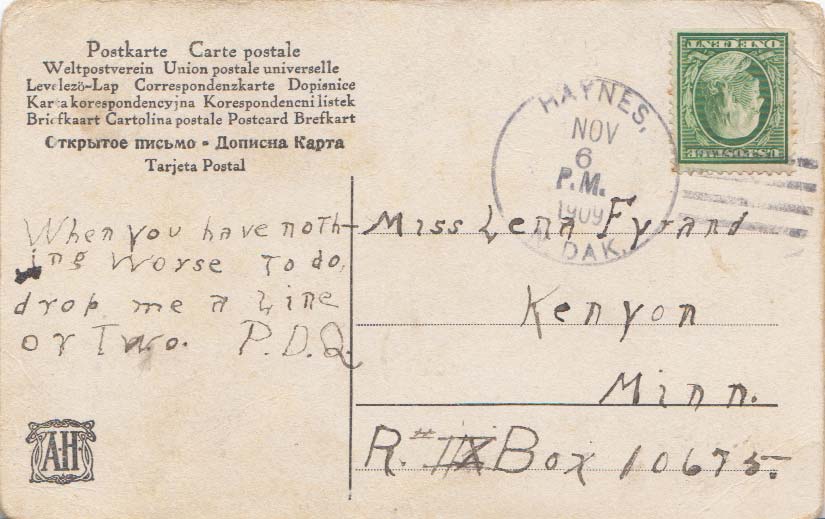 Postkarte Carte postale
Weltpostverein Union postale universelle
Levelezö-Lap Correspondenzkarte Dopisnice
Karta korespondencyjna Korespondencni listek
Briefkaart Cartolina postale Postcard Brefkart
Открытое письмо - Дописна Карта
Tarjeta Postal
HAYNES,
NOV
6
P.M.
1909
N. DAK.
U.S. POSTAGE
ONE CENT
When you have noth-
ing worse to do,
drop me a line
or Two. P.D.Q.
Miss Lena Fyrand
Kenyon
Minn.
R. # Box 10675.
A·H